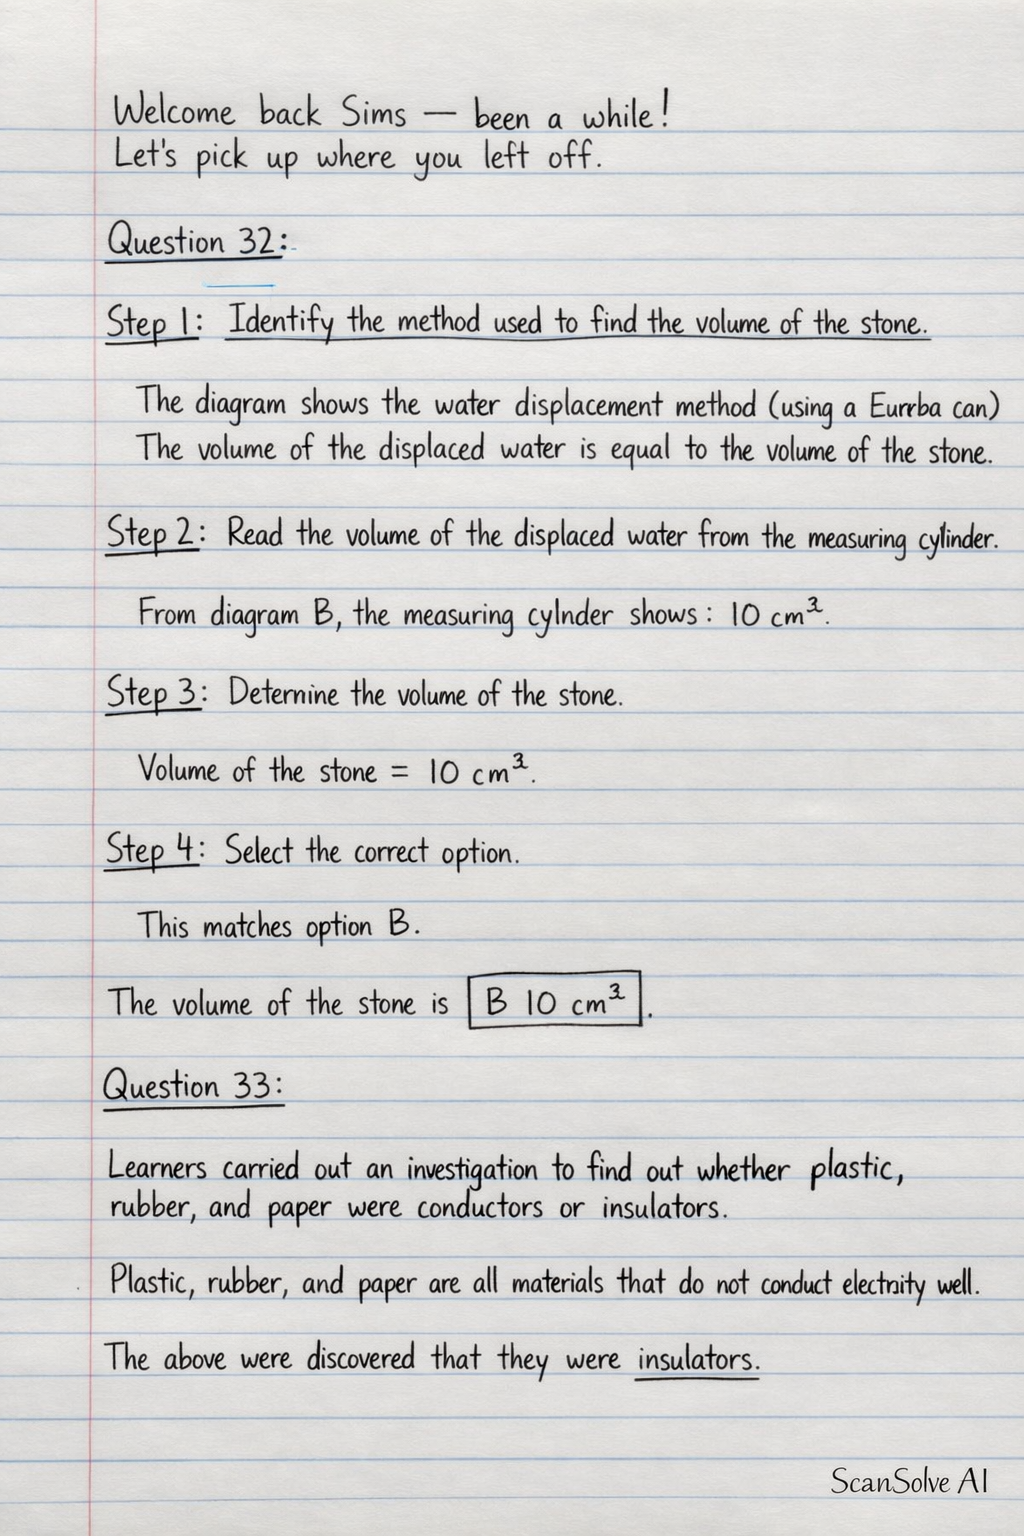 Welcome back Sims — been a while!
Let's pick up where you left off.
Question 32:
Step 1: Identify the method used to find the volume of the stone.
The diagram shows the water displacement method (using a Eurrba can)
The volume of the displaced water is equal to the volume of the stone.
Step 2: Read the volume of the displaced water from the measuring cylinder.
From diagram B, the measuring cylnder shows: 10 cm³.
Step 3: Deternine the volume of the stone.
Volume of the stone = 10 cm³.
Step 4: Select the correct option.
This matches option B.
The volume of the stone is B 10 cm³.
Question 33:
Learners carried out an investigation to find out whether plastic,
rubber, and paper were conductors or insulators.
Plastic, rubber, and paper are all materials that do not conduct electrity well.
The above were discovered that they were insulators.
ScanSolve AI